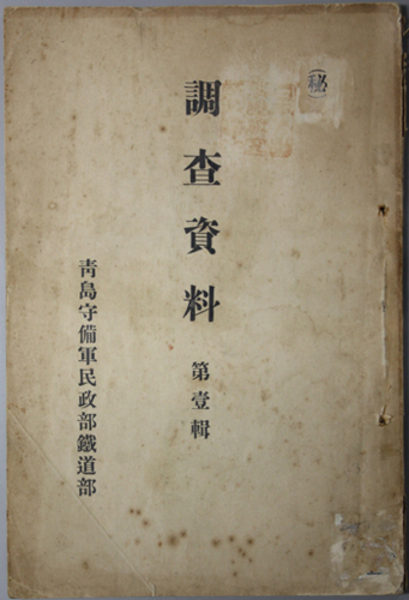 ㊙
調查資料 第壹輯
靑島守備軍民政部鐵道部